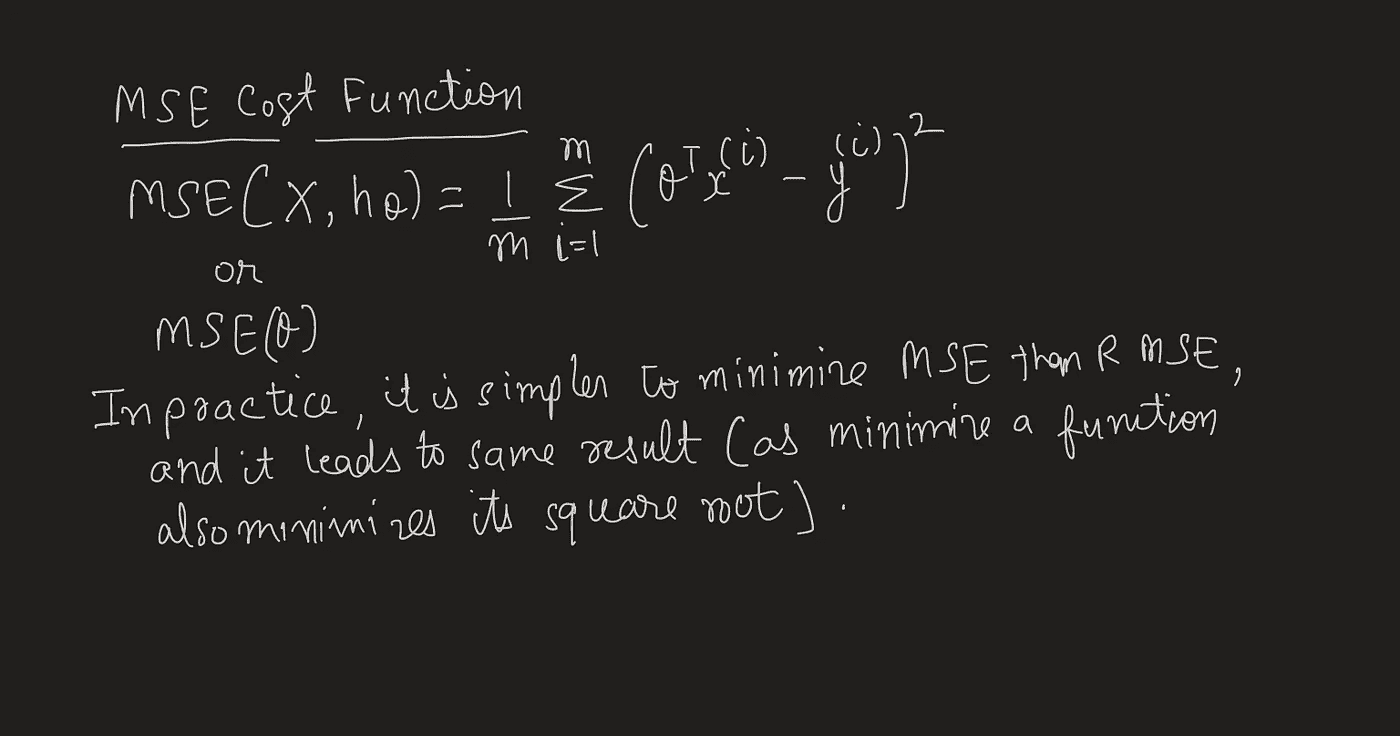 MSE Cost Function
MSE(X, hθ) = 1/m Σ_{i=1}^{m} (θᵀx⁽ⁱ⁾ - y⁽ⁱ⁾)²
or
MSE(θ)
In practice, it is simpler to minimize MSE than RMSE,
and it leads to same result (as minimize a function
also minimizes its square root).